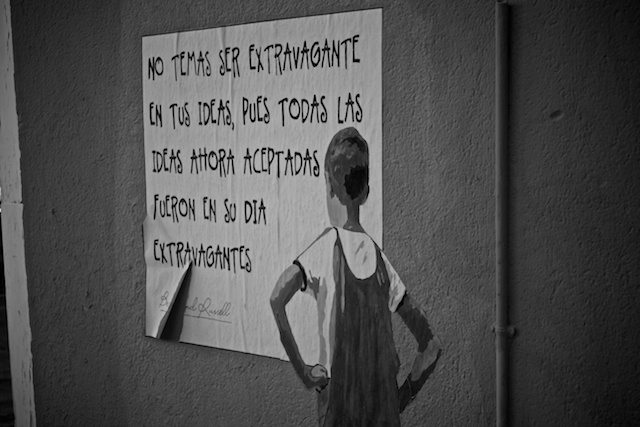 NO TEMAS SER EXTRAVAGANTE
EN TUS IDEAS, PUES TODAS LAS
IDEAS AHORA ACEPTADAS
FUERON EN SU DIA
EXTRAVAGANTES
Russell